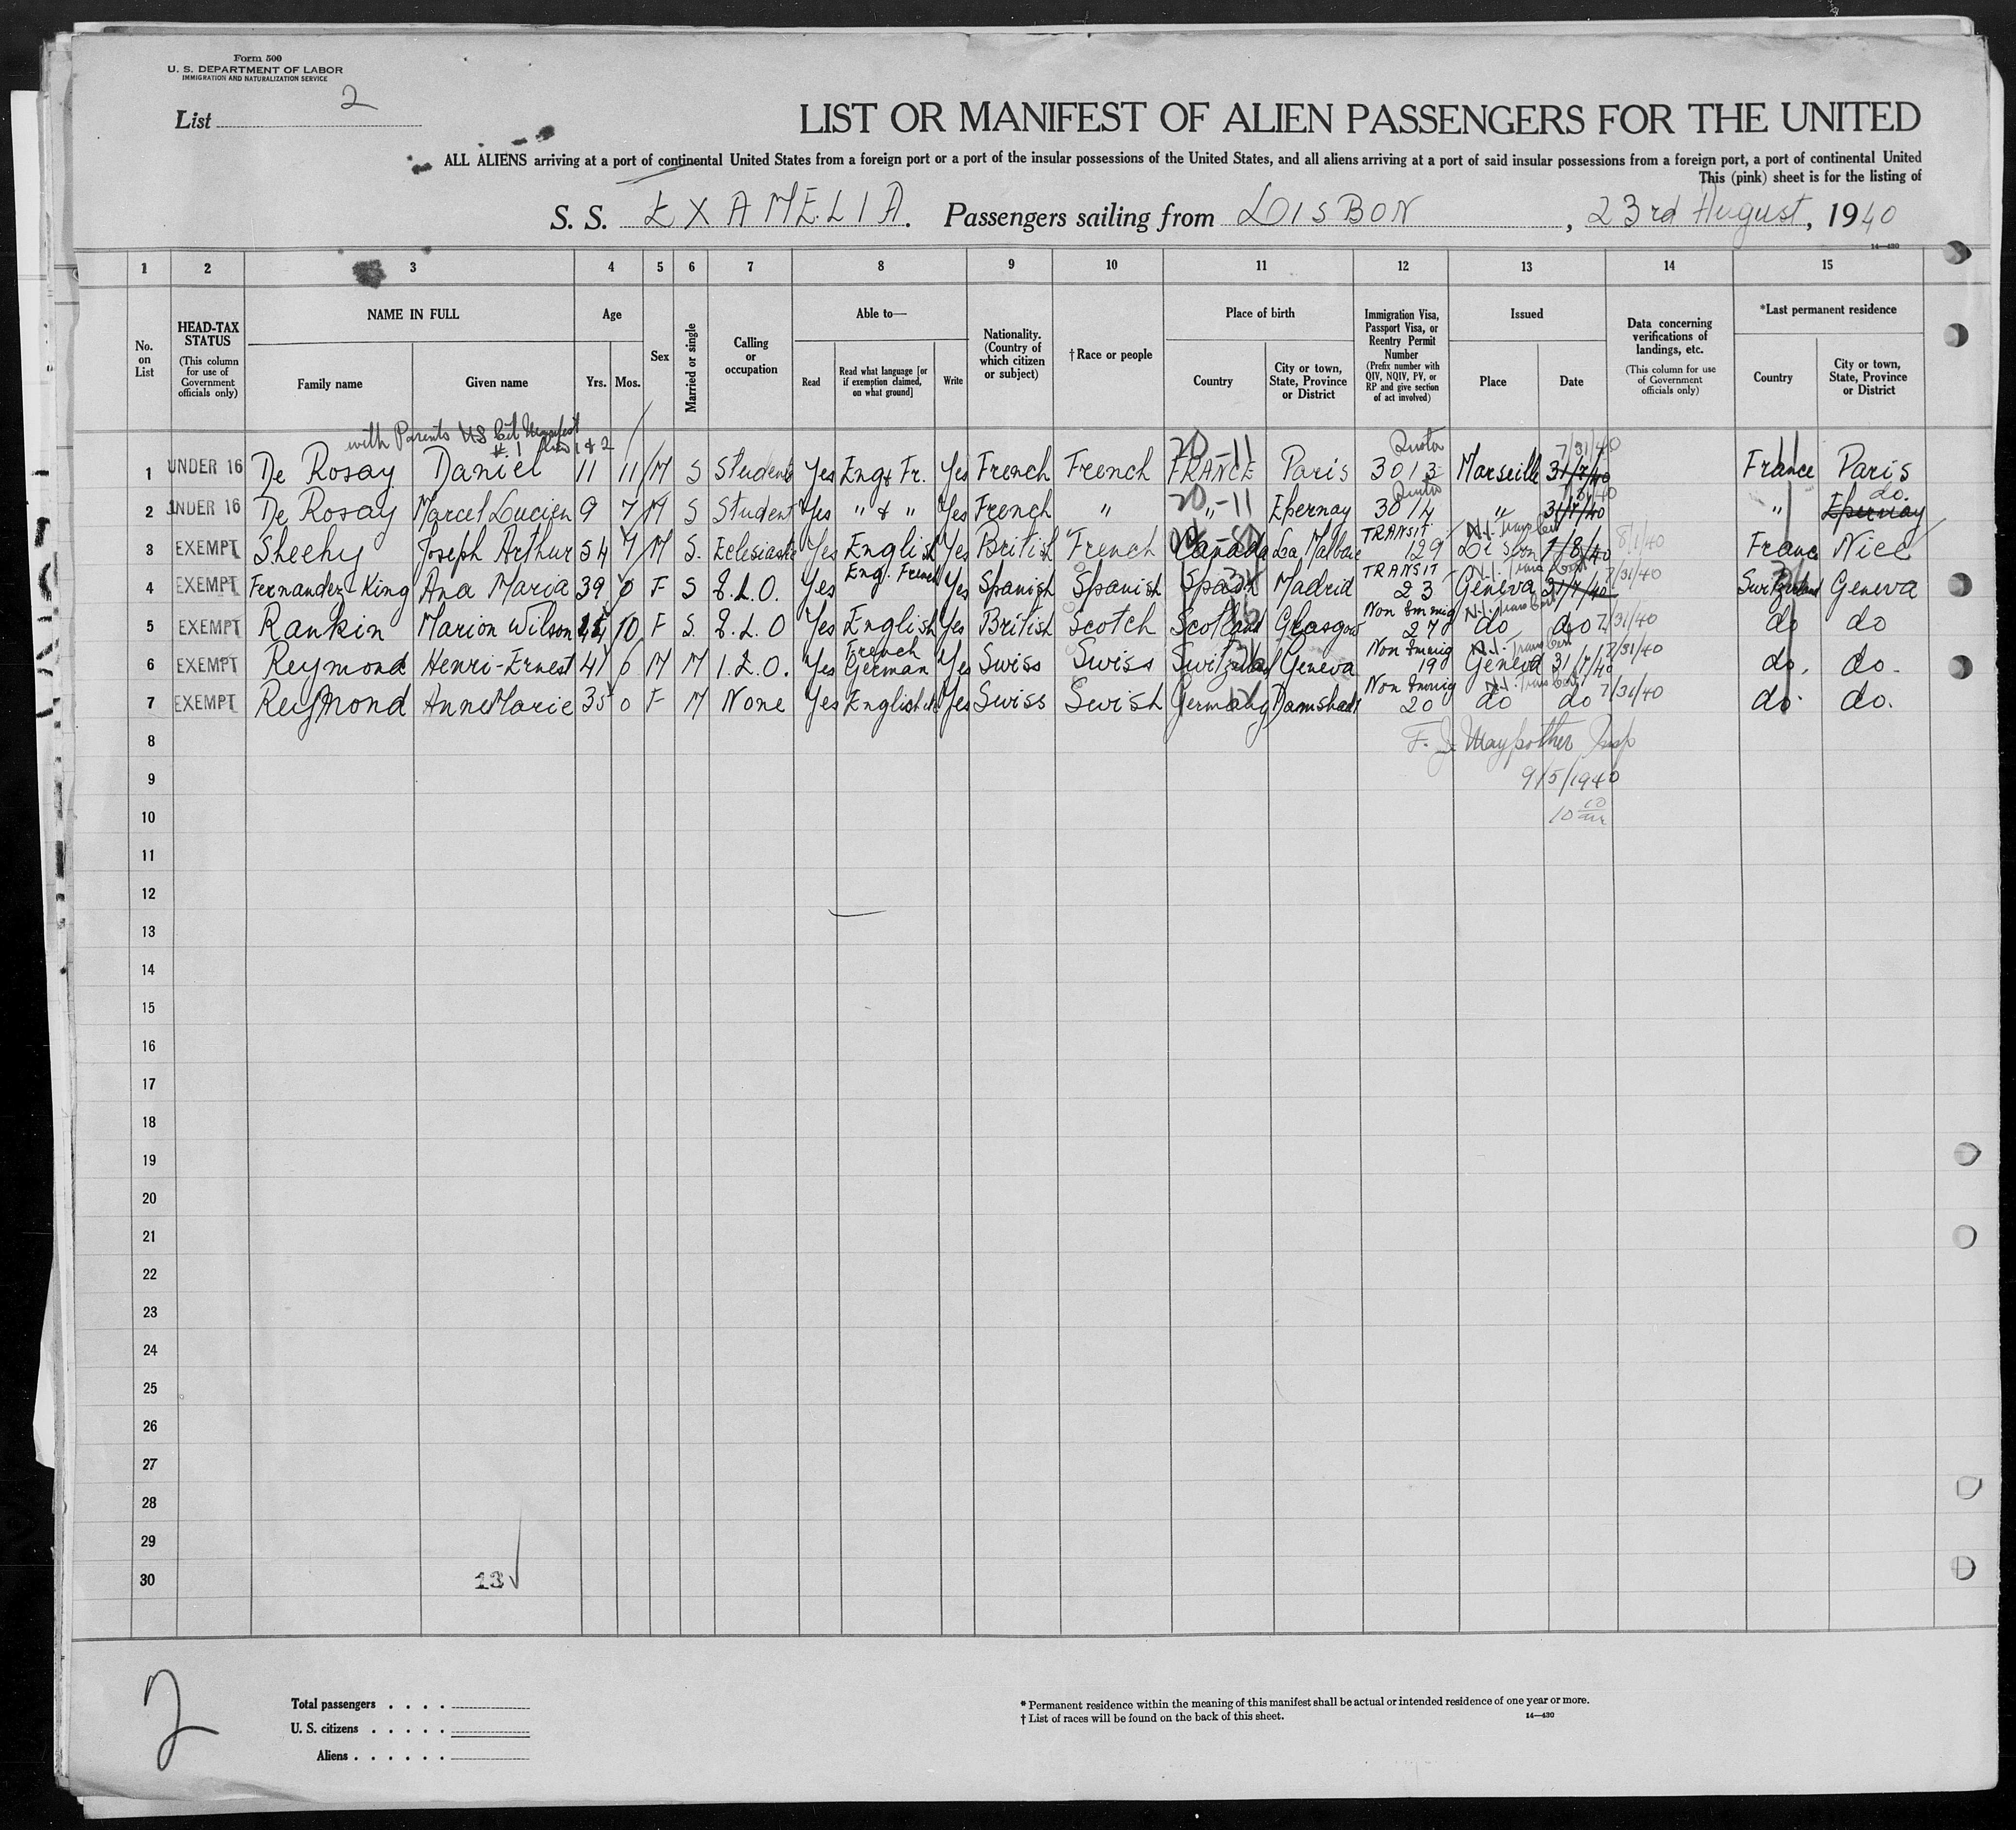 Form 500
U. S. DEPARTMENT OF LABOR
IMMIGRATION AND NATURALIZATION SERVICE
List 2
LIST OR MANIFEST OF ALIEN PASSENGERS FOR THE UNITED
ALL ALIENS arriving at a port of continental United States from a foreign port or a port of the insular possessions of the United States, and all aliens arriving at a port of said insular possessions from a foreign port, a port of continental United
This (pink) sheet is for the listing of
S. S. EXAMELIA. Passengers sailing from LISBON, 23rd August, 1940
14—430
1 2 3 4 5 6 7 8 9 10 11 12 13 14 15
No. on List
HEAD-TAX STATUS (This column for use of Government officials only)
NAME IN FULL
Family name Given name
Age
Yrs. Mos.
Sex
Married or single
Calling or occupation
Able to—
Read Read what language [or if exemption claimed, on what ground] Write
Nationality. (Country of which citizen or subject)
†Race or people
Place of birth
Country City or town, State, Province or District
Immigration Visa, Passport Visa, or Reentry Permit Number (Prefix number with QIV, NQIV, PV, or RP and give section of act involved)
Issued
Place Date
Data concerning verifications of landings, etc. (This column for use of Government officials only)
*Last permanent residence
Country City or town, State, Province or District
with Parents US Cit Manifest
#1 lines 1 & 2
20-11 Quota 7/31/40
1 UNDER 16 De Rosay Daniel 11 11 M S Student Yes Eng & Fr. Yes French French FRANCE Paris 3013 Marseille 31/7/40 France Paris
20-11 Quota do.
2 UNDER 16 De Rosay Marcel Lucien 9 7 M S Student Yes " & " Yes French " " Epernay 3014 " 31/7/40 " Epernay
TRANSIT 8/1/40
3 EXEMPT Sheehy Joseph Arthur 54 7 M S. Eclesiastic Yes English Yes British French Canada La Malbaie 129 Lisbon 1/8/40 Franc Nice
Eng. French TRANSIT 7/31/40
4 EXEMPT Fernandez-King Ana Maria 39 0 F S I.L.O. Yes Yes Spanish Spanish Spain Madrid 23 Geneva 31/7/40 Switzerland Geneva
Non Immig
5 EXEMPT Rankin Marion Wilson 10 F S. I.L.O Yes English Yes British Scotch Scotland Glasgow 27 do do 7/31/40 do do
French Non Immig 7/31/40
6 EXEMPT Reymond Henri-Ernest 41 6 M M I.L.O. Yes German Yes Swiss Swiss Switzerland Geneva 19 Geneva 31/7/40 do. do.
Non Immig 7/31/40
7 EXEMPT Reymond AnneMarie 35 0 F M None Yes English Yes Swiss Swish Germany Darmshadt 20 do do do. do.
8 F. J. Maypother Insp
9 9/5/1940
10 10 10 am
11
12
13
14
15
16
17
18
19
20
21
22
23
24
25
26
27
28
29
30 13
2
Total passengers
U. S. citizens
Aliens
* Permanent residence within the meaning of this manifest shall be actual or intended residence of one year or more.
† List of races will be found on the back of this sheet.
14—430